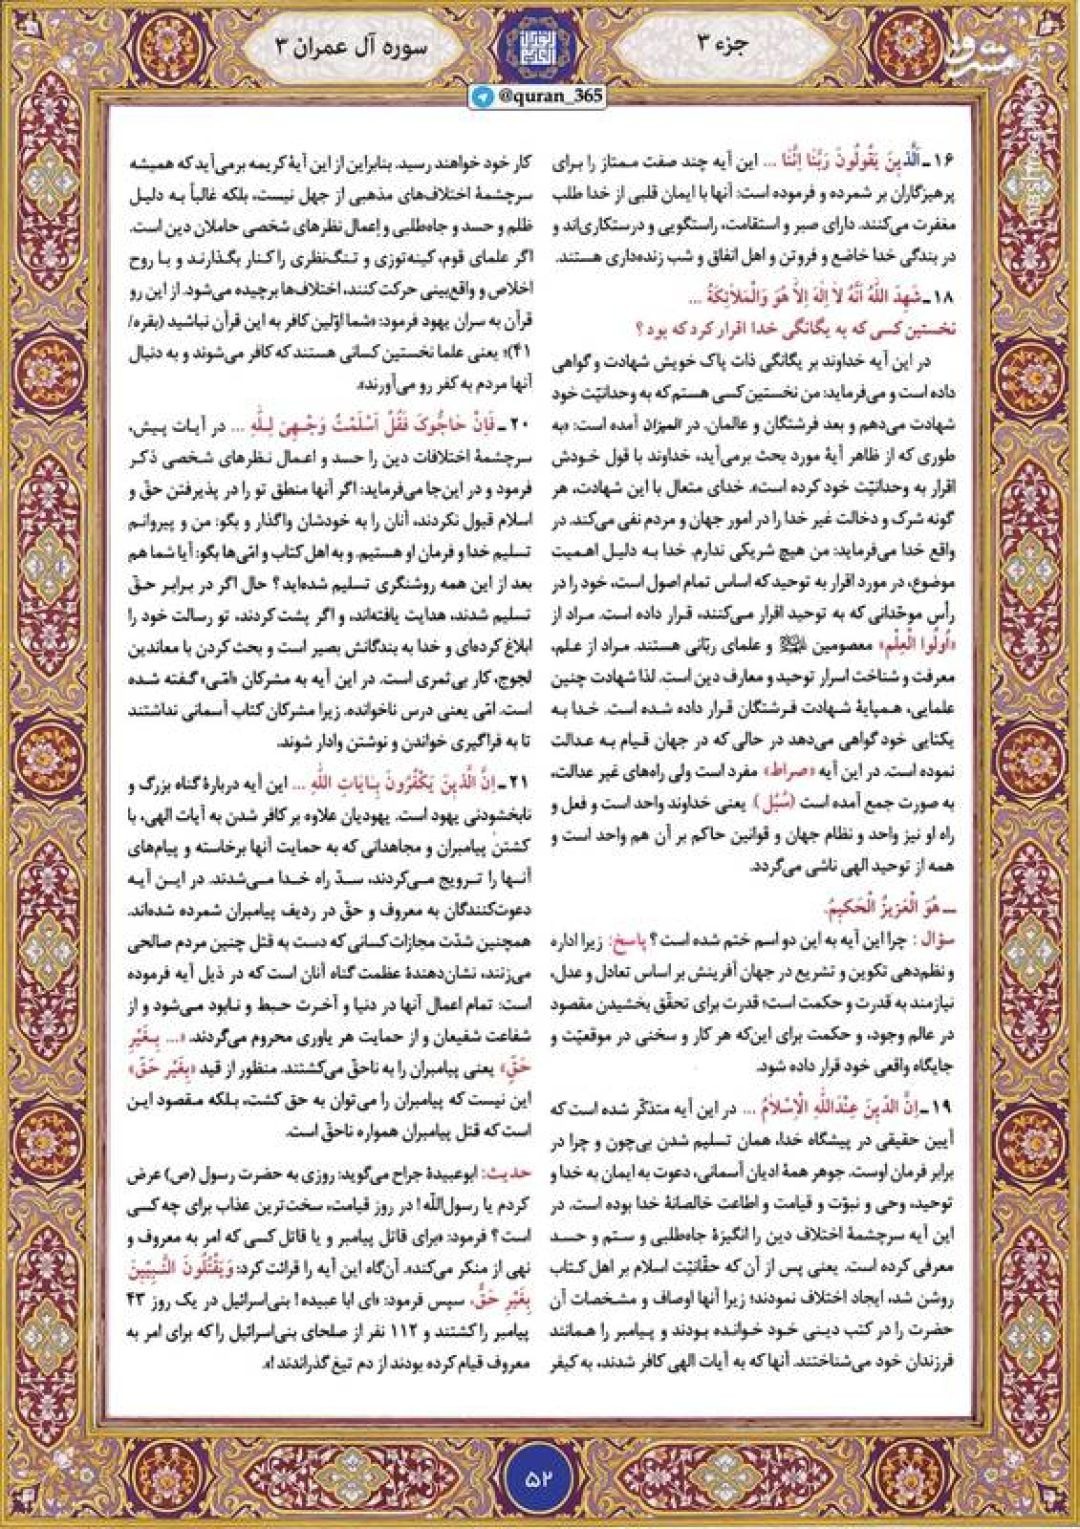 جزء ۳
سوره آل عمران ۳
@quran_365
۱۶ـ اَلَّذینَ یَقُولُونَ رَبَّنا اِنَّنا ... این آیه چند صفت ممتاز را برای
پرهیزگاران بر شمرده و فرموده است: آنها با ایمان قلبی از خدا طلب
مغفرت می‌کنند. دارای صبر و استقامت، راستگویی و درستکاری‌اند و
در بندگی خدا خاضع و فروتن و اهل انفاق و شب زنده‌داری هستند.
۱۸ـ شَهِدَ اللّٰهُ اَنَّهُ لاٰ اِلٰهَ اِلاّٰ هُوَ وَالْمَلاٰئِکَةُ ...
نخستین کسی که به یگانگی خدا اقرار کرد که بود؟
در این آیه خداوند بر یگانگی ذات پاک خویش شهادت و گواهی
داده است و می‌فرماید: من نخستین کسی هستم که به وحدانیّت خود
شهادت می‌دهم و بعد فرشتگان و عالمان. در المیزان آمده است: «به
طوری که از ظاهر آیهٔ مورد بحث برمی‌آید، خداوند با قول خودش
اقرار به وحدانیّت خود کرده است». خدای متعال با این شهادت، هر
گونه شرک و دخالت غیر خدا را در امور جهان و مردم نفی می‌کند. در
واقع خدا می‌فرماید: من هیچ شریکی ندارم. خدا به دلیل اهمیت
موضوع، در مورد اقرار به توحید که اساس تمام اصول است، خود را در
رأس موحّدانی که به توحید اقرار می‌کنند، قرار داده است. مراد از
«اُولُوا الْعِلْمِ» معصومین علیهم‌السلام و علمای ربّانی هستند. مراد از علم،
معرفت و شناخت اسرار توحید و معارف دین است. لذا شهادت چنین
علمایی، همپایهٔ شهادت فرشتگان قرار داده شده است. خدا به
یکتایی خود گواهی می‌دهد در حالی که در جهان قیام به عدالت
نموده است. در این آیه «صراط» مفرد است ولی راه‌های غیر عدالت،
به صورت جمع آمده است (سُبُل) یعنی خداوند واحد است و فعل و
راه او نیز واحد و نظام جهان و قوانین حاکم بر آن هم واحد است و
همه از توحید الهی ناشی می‌گردد.
ـ هُوَ الْعَزیزُ الْحَکیمُ.
سؤال: چرا این آیه به این دو اسم ختم شده است؟ پاسخ: زیرا اداره
و نظم‌دهی تکوین و تشریع در جهان آفرینش بر اساس تعادل و عدل،
نیازمند به قدرت و حکمت است؛ قدرت برای تحقّق بخشیدن مقصود
در عالم وجود، و حکمت برای این‌که هر کار و سخنی در موقعیّت و
جایگاه واقعی خود قرار داده شود.
۱۹ـ اِنَّ الدّینَ عِنْدَاللّٰهِ الْاِسْلاٰمُ ... در این آیه متذکّر شده است که
آیین حقیقی در پیشگاه خدا، همان تسلیم شدن بی‌چون و چرا در
برابر فرمان اوست. جوهر همهٔ ادیان آسمانی، دعوت به ایمان به خدا و
توحید، وحی و نبوّت و قیامت و اطاعت خالصانهٔ خدا بوده است. در
این آیه سرچشمهٔ اختلاف دین را انگیزهٔ جاه‌طلبی و ستم و حسد
معرفی کرده است. یعنی پس از آن که حقّانیّت اسلام بر اهل کتاب
روشن شد، ایجاد اختلاف نمودند؛ زیرا آنها اوصاف و مشخصات آن
حضرت را در کتب دینی خود خوانده بودند و پیامبر را همانند
فرزندان خود می‌شناختند. آنها که به آیات الهی کافر شدند، به کیفر
کار خود خواهند رسید. بنابراین از این آیهٔ کریمه برمی‌آید که همیشه
سرچشمهٔ اختلاف‌های مذهبی از جهل نیست، بلکه غالباً به دلیل
ظلم و حسد و جاه‌طلبی و اعمال نظرهای شخصی حاملان دین است.
اگر علمای قوم، کینه‌توزی و تنگ‌نظری را کنار بگذارند و با روح
اخلاص و واقع‌بینی حرکت کنند، اختلاف‌ها برچیده می‌شود. از این رو
قرآن به سران یهود فرمود: «شما اوّلین کافر به این قرآن نباشید (بقره/
۴۱)؛ یعنی علما نخستین کسانی هستند که کافر می‌شوند و به دنبال
آنها مردم به کفر رو می‌آورند».
۲۰ـ فَاِنْ حٰاجُّوکَ فَقُلْ اَسْلَمْتُ وَجْهِیَ لِلّٰهِ ... در آیات پیش،
سرچشمهٔ اختلافات دین را حسد و اعمال نظرهای شخصی ذکر
فرمود و در این‌جا می‌فرماید: اگر آنها منطق تو را در پذیرفتن حقّ و
اسلام قبول نکردند، آنان را به خودشان واگذار و بگو: من و پیروانم
تسلیم خدا و فرمان او هستیم. و به اهل کتاب و امّی‌ها بگو: آیا شما هم
بعد از این همه روشنگری تسلیم شده‌اید؟ حال اگر در برابر حقّ
تسلیم شدند، هدایت یافته‌اند، و اگر پشت کردند، تو رسالت خود را
ابلاغ کرده‌ای و خدا به بندگانش بصیر است و بحث کردن با معاندین
لجوج، کار بی‌ثمری است. در این آیه به مشرکان «امّی» گفته شده
است. امّی یعنی درس ناخوانده. زیرا مشرکان کتاب آسمانی نداشتند
تا به فراگیری خواندن و نوشتن وادار شوند.
۲۱ـ اِنَّ الَّذینَ یَکْفُرُونَ بِاٰیٰاتِ اللّٰهِ ... این آیه دربارهٔ گناه بزرگ و
نابخشودنی یهود است. یهودیان علاوه بر کافر شدن به آیات الهی، با
کشتن پیامبران و مجاهدانی که به حمایت آنها برخاسته و پیام‌های
آنها را ترویج می‌کردند، سدّ راه خدا می‌شدند. در این آیه
دعوت‌کنندگان به معروف و حقّ در ردیف پیامبران شمرده شده‌اند.
همچنین شدّت مجازات کسانی که دست به قتل چنین مردم صالحی
می‌زنند، نشان‌دهندهٔ عظمت گناه آنان است که در ذیل آیه فرموده
است: تمام اعمال آنها در دنیا و آخرت حبط و نابود می‌شود و از
شفاعت شفیعان و از حمایت هر یاوری محروم می‌گردند. «... بِغَیْرِ
حَقٍّ» یعنی پیامبران را به ناحقّ می‌کشتند. منظور از قید «بِغَیْرِ حَقّ»
این نیست که پیامبران را می‌توان به حق کشت، بلکه مقصود این
است که قتل پیامبران همواره ناحقّ است.
حدیث: ابوعبیدهٔ جراح می‌گوید: روزی به حضرت رسول (ص) عرض
کردم یا رسول‌اللّه! در روز قیامت، سخت‌ترین عذاب برای چه کسی
است؟ فرمود: «برای قاتل پیامبر و یا قاتل کسی که امر به معروف و
نهی از منکر می‌کند». آن‌گاه این آیه را قرائت کرد: وَیَقْتُلُونَ النَّبِیّینَ
بِغَیْرِ حَقٍّ. سپس فرمود: «ای ابا عبیده! بنی‌اسرائیل در یک روز ۴۳
پیامبر را کشتند و ۱۱۲ نفر از صلحای بنی‌اسرائیل را که برای امر به
معروف قیام کرده بودند از دم تیغ گذراندند!».
۵۲